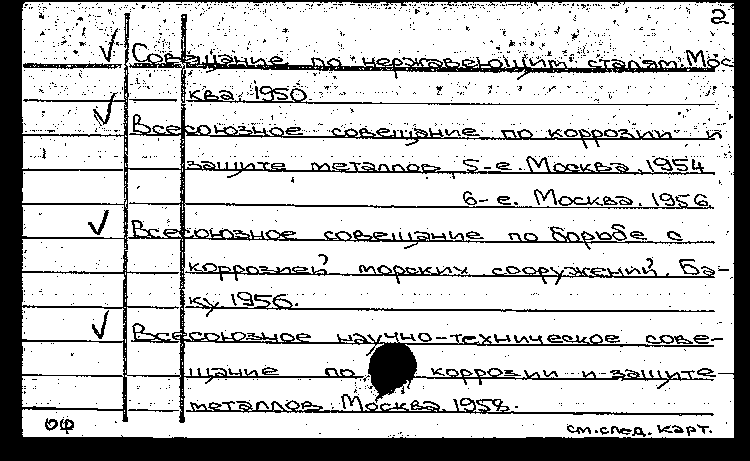 2.
Совещание по нержавеющим сталям. Мос
ква. 1950
Всесоюзное совещание по коррозии и
защите металлов. 5-е. Москва. 1954
6-е. Москва. 1956
Всесоюзное совещание по борьбе с
коррозией морских сооружений. Ба-
ку 1956.
Всесоюзное научно-техническое сове-
щание по коррозии и защите
металлов. Москва. 1958.
ОФ см. след. карт.